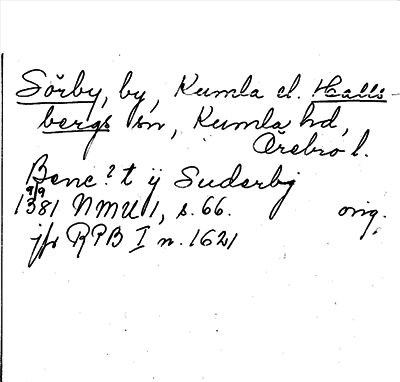 Sörby, by, Kumla el. Halls-
bergs sn, Kumla hd,
Örebro l.
Benc?t ij Suderby
9/9
1381 NMU 1, s. 66. orig.
jfr RPB I n. 1621